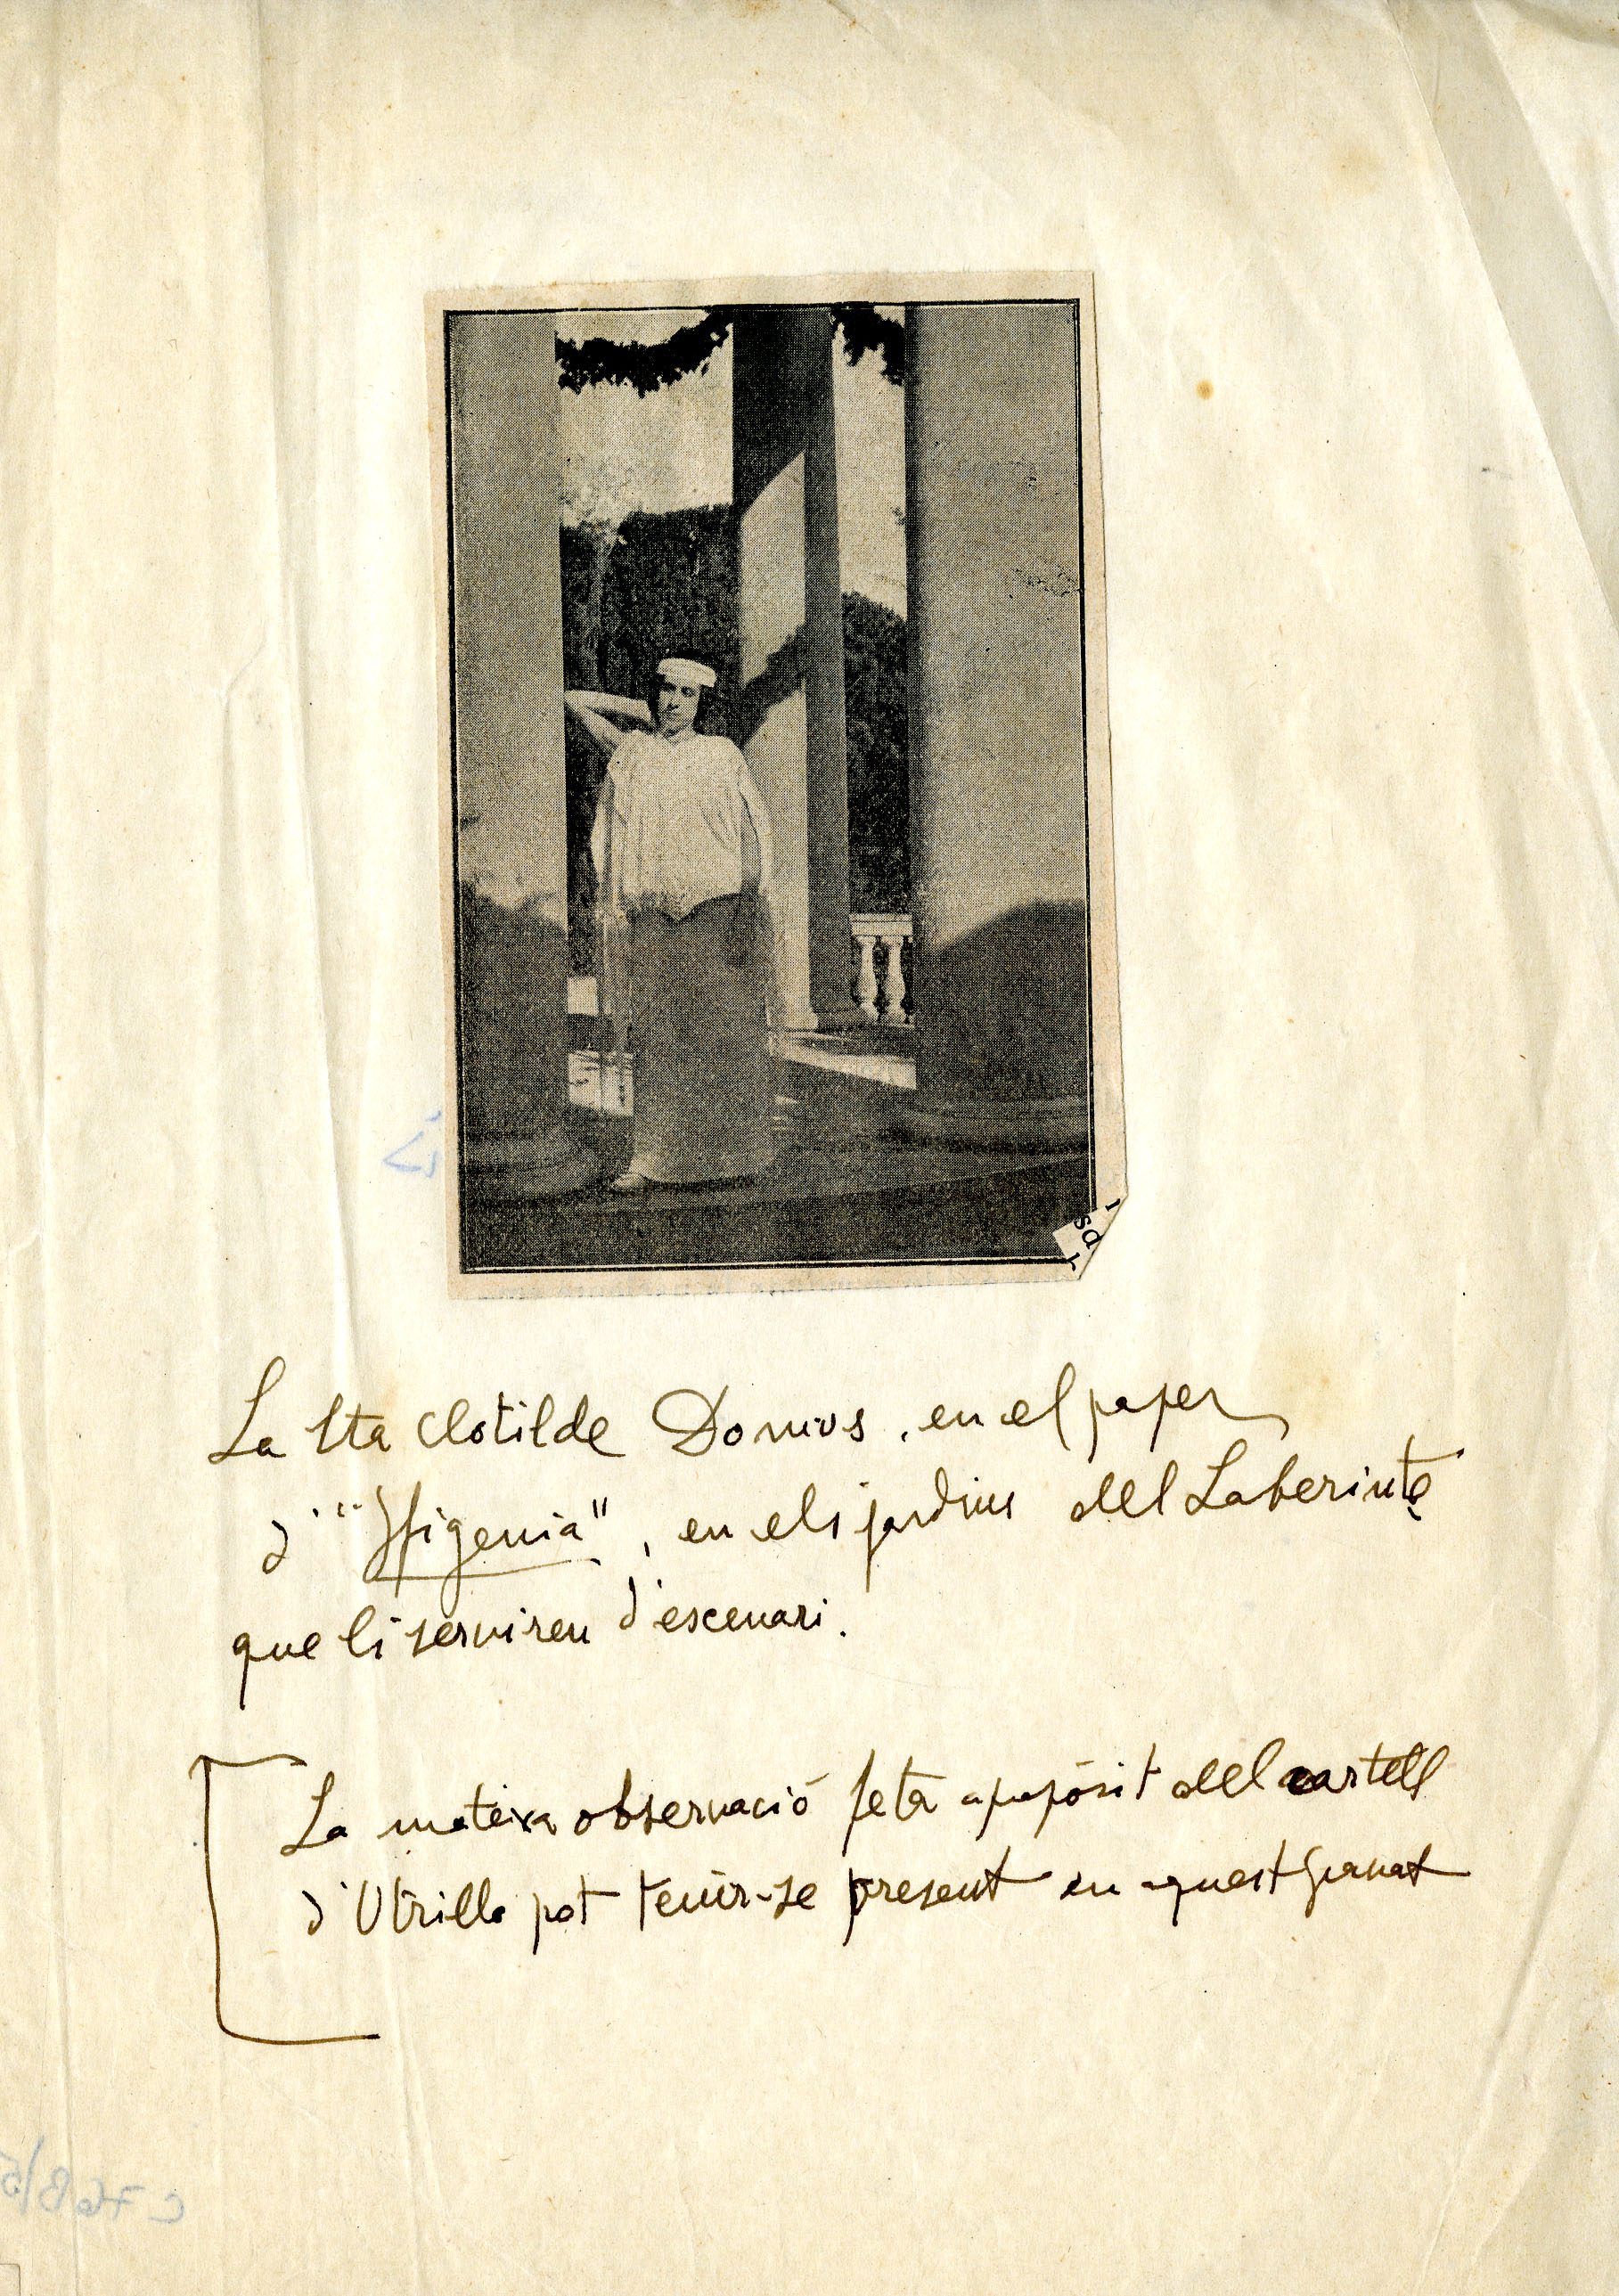 La Sta Clotilde Domus, en el paper
d'"Ifigenia", en els jardins del Laberinte
que li serviren d'escenari.
La mateixa observació feta apropòsit del cartell
d'Utrillo pot tenir-se present en aquest gravat